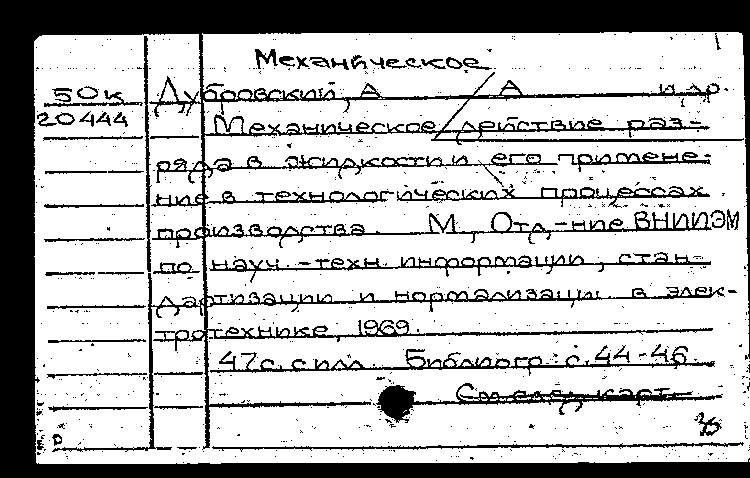 Механическое
50к Дубровский, А А и др.
20444 Механическое действие раз-
ряда в жидкости и его примене-
ние в технологических процессах
производства. М., Отд-ние ВНИИЭМ
по науч.-техн. информации, стан-
дартизации и нормализации в элек-
тротехнике, 1969.
47с. с илл. Библиогр: с. 44-46.
См след карт.